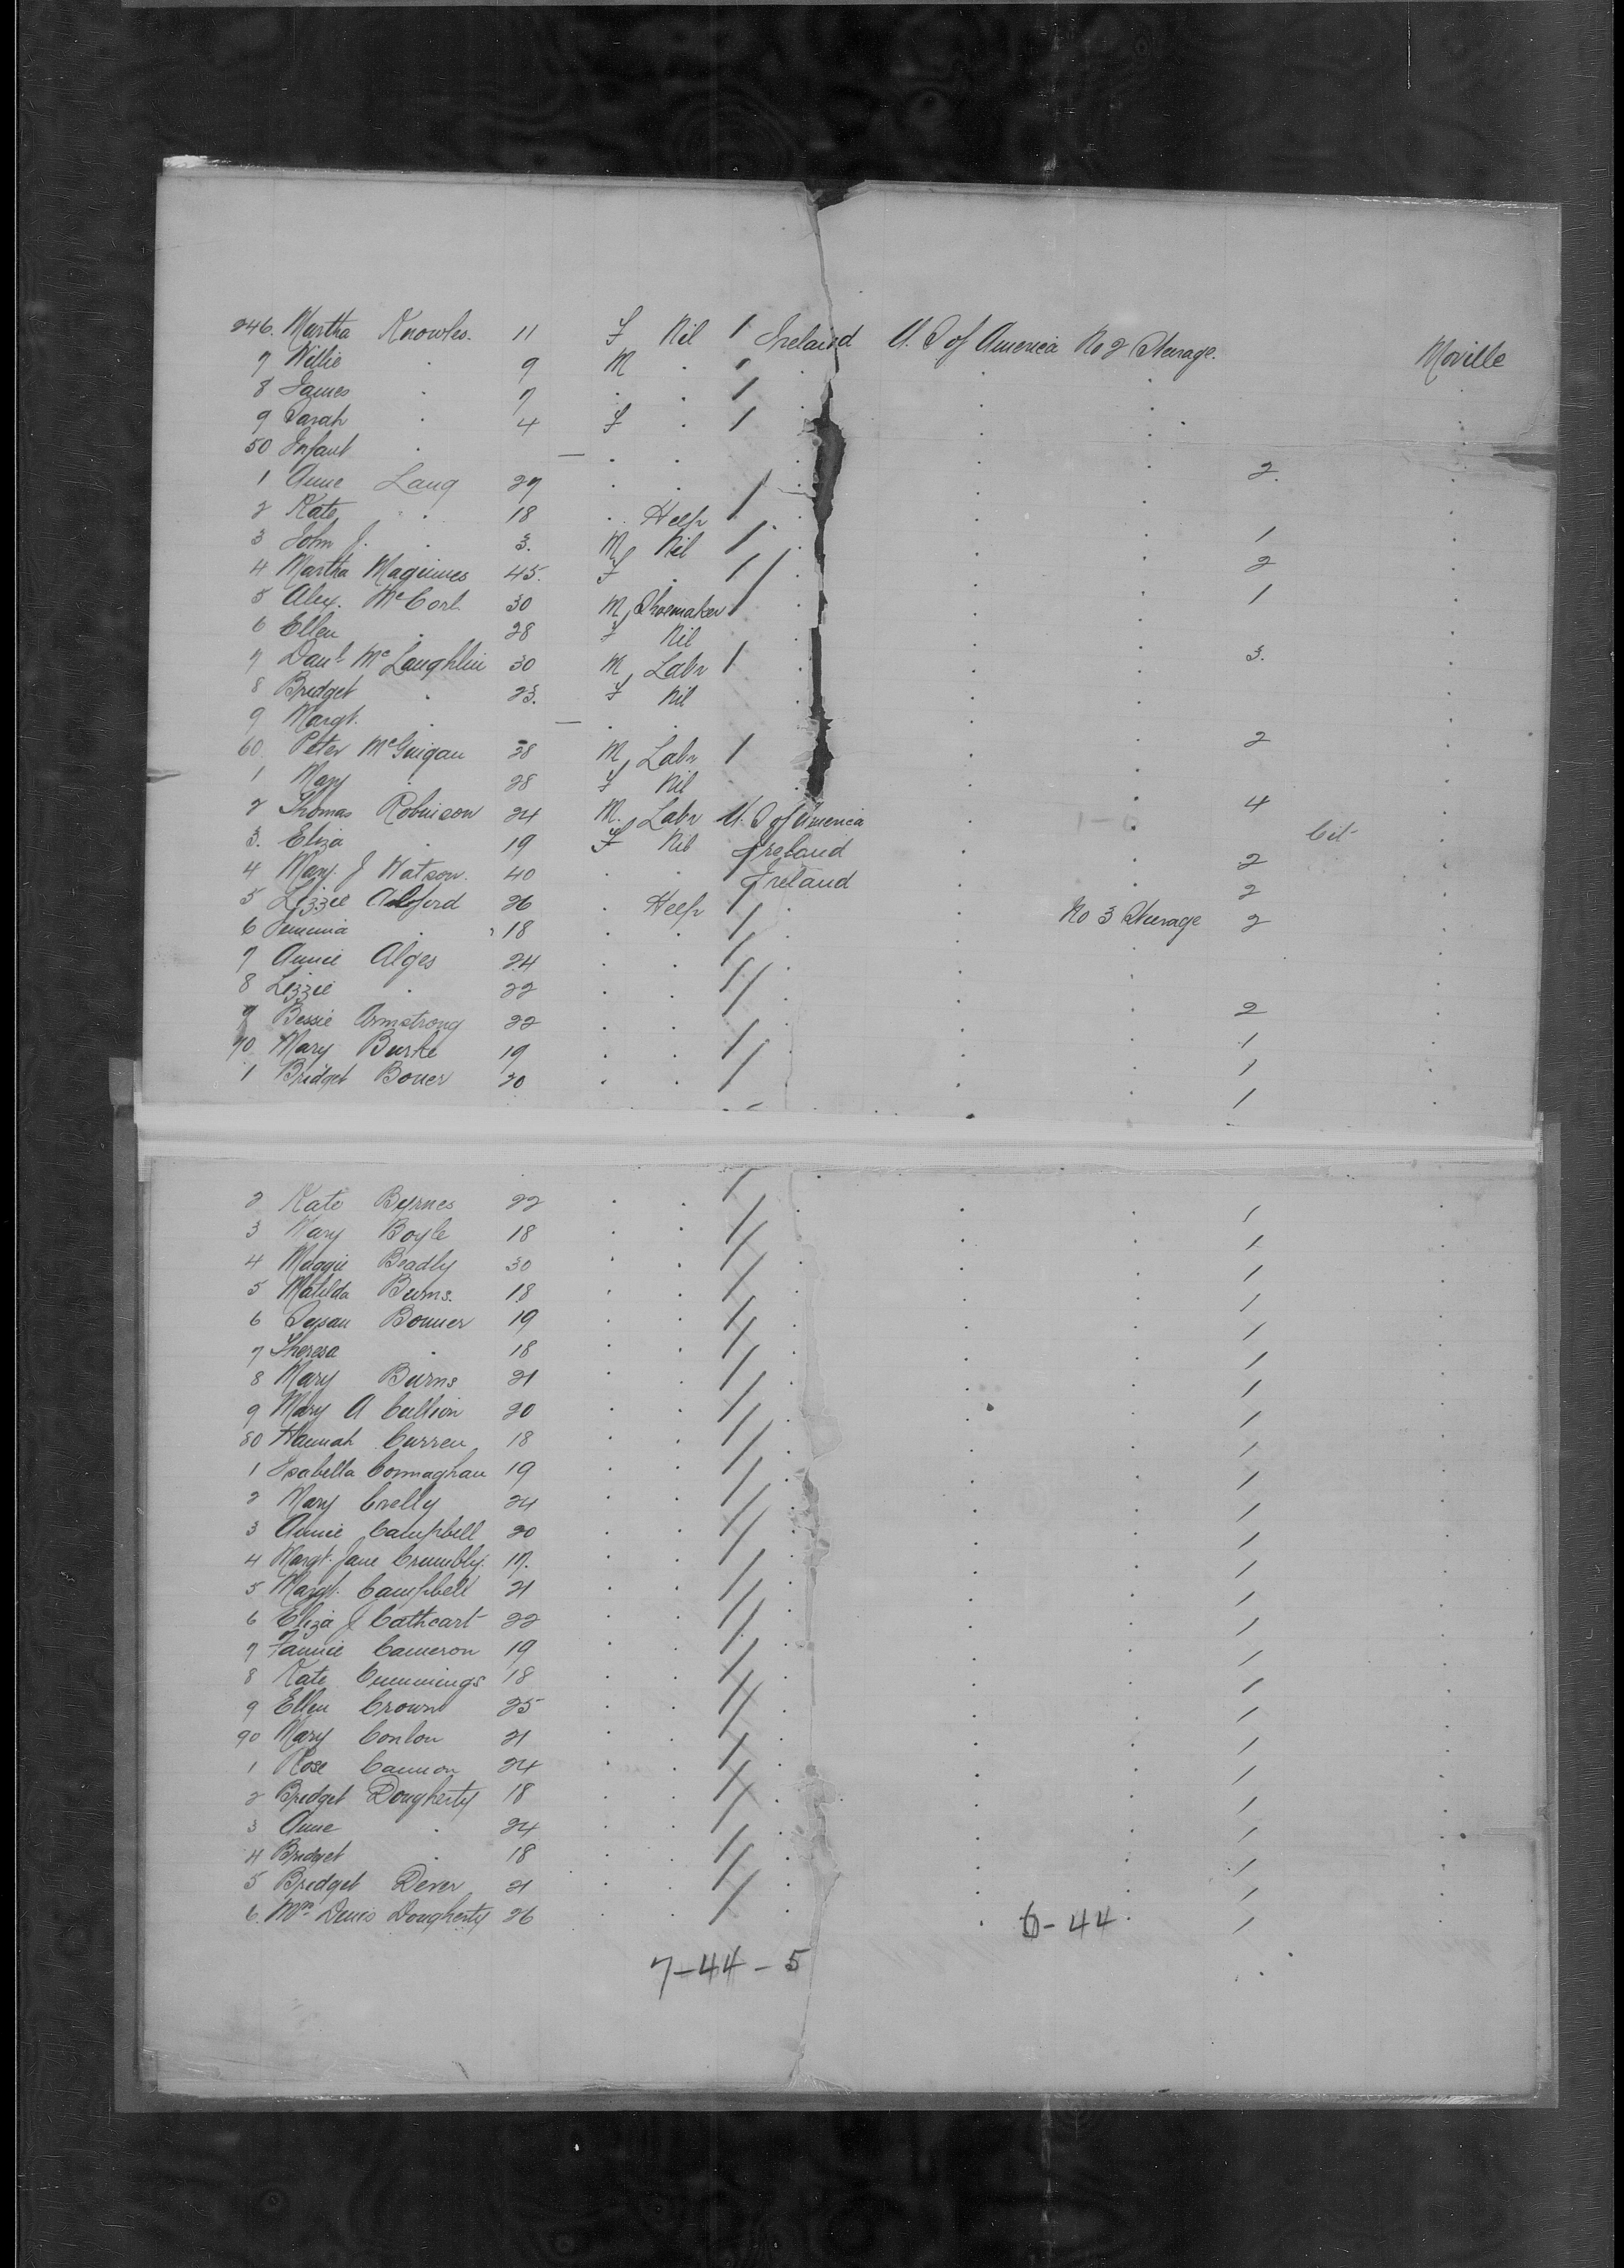 246. Martha Knowles. 11 F Nil / Ireland U. S of America No 2 Steerage. Moville
7 Willie . 9 M . / . . . .
8 James . 7 . . / . . . .
9 Sarah . 4 F . / . . . .
50 Infant . — . . . . . 2. .
1 Anne Lang 27 . . / . . . .
2 Kate . 18 . Help / . . . 1 .
3 John J. . 3. M Nil / . . . 2 .
4 Martha Maguines 45. F . / . . . 1 .
5 Alex. McCorl. 30 M Shoemaker / . . . .
6 Ellen . 28 F Nil . . . 3. .
7 Danl McLaughlin 30 M Labr / . . . .
8 Bridget . 23. F Nil . . .
9 Margt. . — . . . . 2 .
60 Peter McGuigan 28 M Labr / . . .
1 Mary . 28 F Nil . . . 4 .
2 Thomas Robinson 24 M. Labr U. S of America . Cit .
3. Eliza . 19 F Nil Ireland . . 2 .
4 Mary J Watson. 40 . . Ireland . . 2 .
5 Lizzie Alford 26 . Help / . . No 3 Steerage 2 .
6 Jemima . 18 . . / . . . .
7 Annie Alges 24 . . / . . . .
8 Lizzie . 22 . . / . . . 2 .
9 Bessie Armstrong 22 . . / . . . 1 .
70 Mary Burke 19 . . / . . . 1 .
1 Bridget Boner 20 . . / . . . 1 .
2 Kate Byrnes 22 . . / . . . 1 .
3 Mary Boyle 18 . . / . . . 1 .
4 Maggie Beadly 30 . . / . . . 1 .
5 Matilda Burns. 18 . . / . . . 1 .
6 Susan Bonner 19 . . / . . . 1 .
7 Theresa . 18 . . / . . . 1 .
8 Mary Burns 21 . . / . . . 1 .
9 Mary A Cullion 20 . . / . . . 1 .
80 Hannah Curren 18 . . / . . . 1 .
1 Isabella Connaghan 19 . . / . . . 1 .
2 Mary Crelly 24 . . / . . . 1 .
3 Annie Campbell 20 . . / . . . 1 .
4 Margt. Jane Crumbly. 17. . . / . . . 1 .
5 Margt. Campbell 21 . . / . . . 1 .
6 Eliza J Cathcart 22 . . / . . . 1 .
7 Fannie Cameron 19 . . / . . . 1 .
8 Kate Cummings 18 . . / . . . 1 .
9 Ellen Crown 25 . . / . . . 1 .
90 Mary Conlon 21 . . / . . . 1 .
1 Rose Cannon 24 . . / . . . 1 .
2 Bridget Dougherty 18 . . / . . . 1 .
3 Anne . 24 . . / . . . 1 .
4 Bridget . 18 . . / . . . 1 .
5 Bridget Dever 21 . . / . . . 1 .
6. Mrs Denis Dougherty 26 . . / . . 6-44 . 1 .
7-44-5